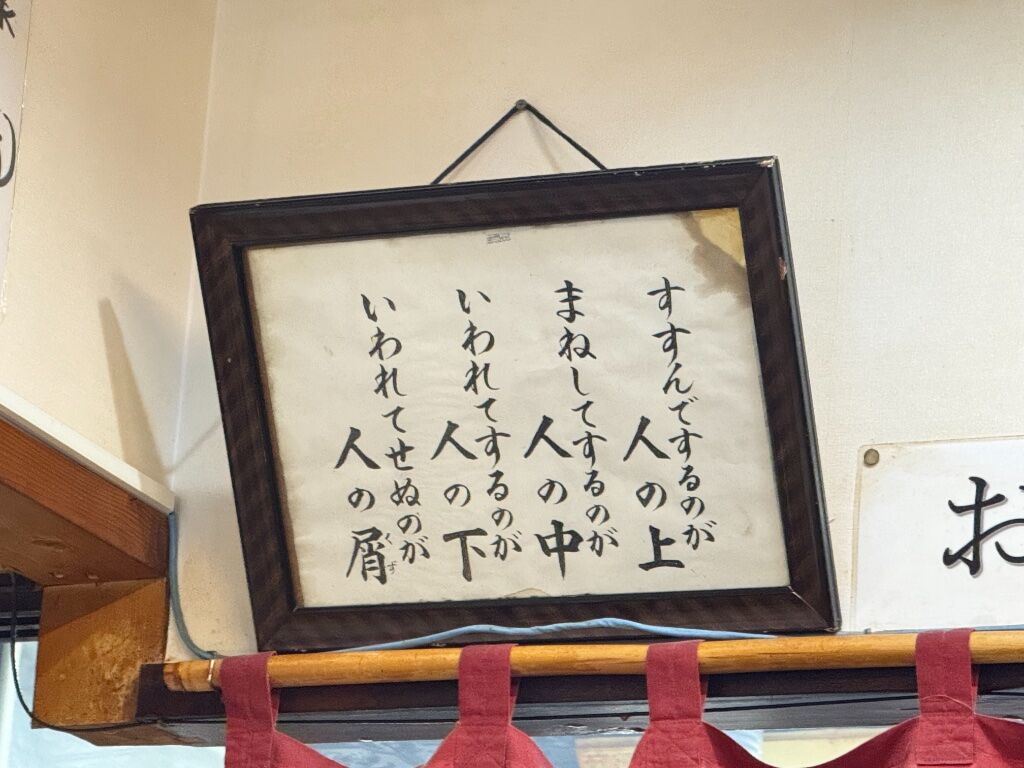 すすんでするのが
人の上
まねしてするのが
人の中
いわれてするのが
人の下
いわれてせぬのが
人の屑
くず
お